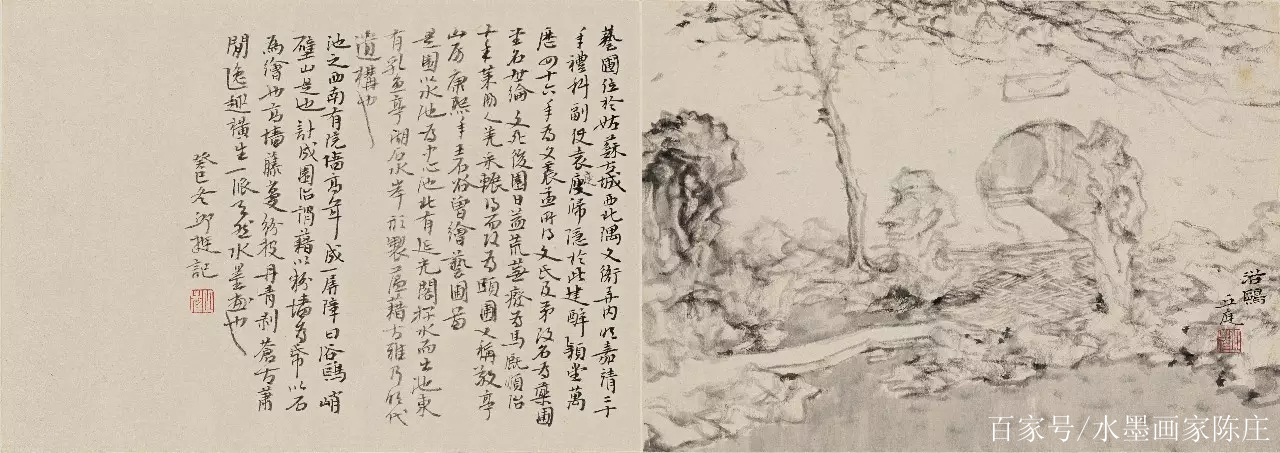 藝圃位於姑蘇古城西北隅文衙弄内明嘉靖三十
年禮科副使袁歸隱於此建醉穎堂萬
歷四十六年為文震孟所得文氏及弟改名為藥圃
堂名世綸文死後園日益荒蕪癈為馬厩順治
十年萊陽人姜采轉得而改為頤圃又稱敬亭
山房康熙年王石谷曾繪藝圃圖
是園以水池為中心池北有延光閣探水而出池東
有乳魚亭湖石水岸形製藉古雅乃明代
遺構也
池之西南有院墻高年成一屏障曰浴鷗峭
壁山是也計成園冶謂藉以粉墻為紙以石
為繪也高墻藤蔓紛披丹青剥蒼古蕭
閒逸趣橫生一派天然水墨畫也
癸巳冬邱挺記
浴鷗
丘挺
百家号/水墨画家陈庄